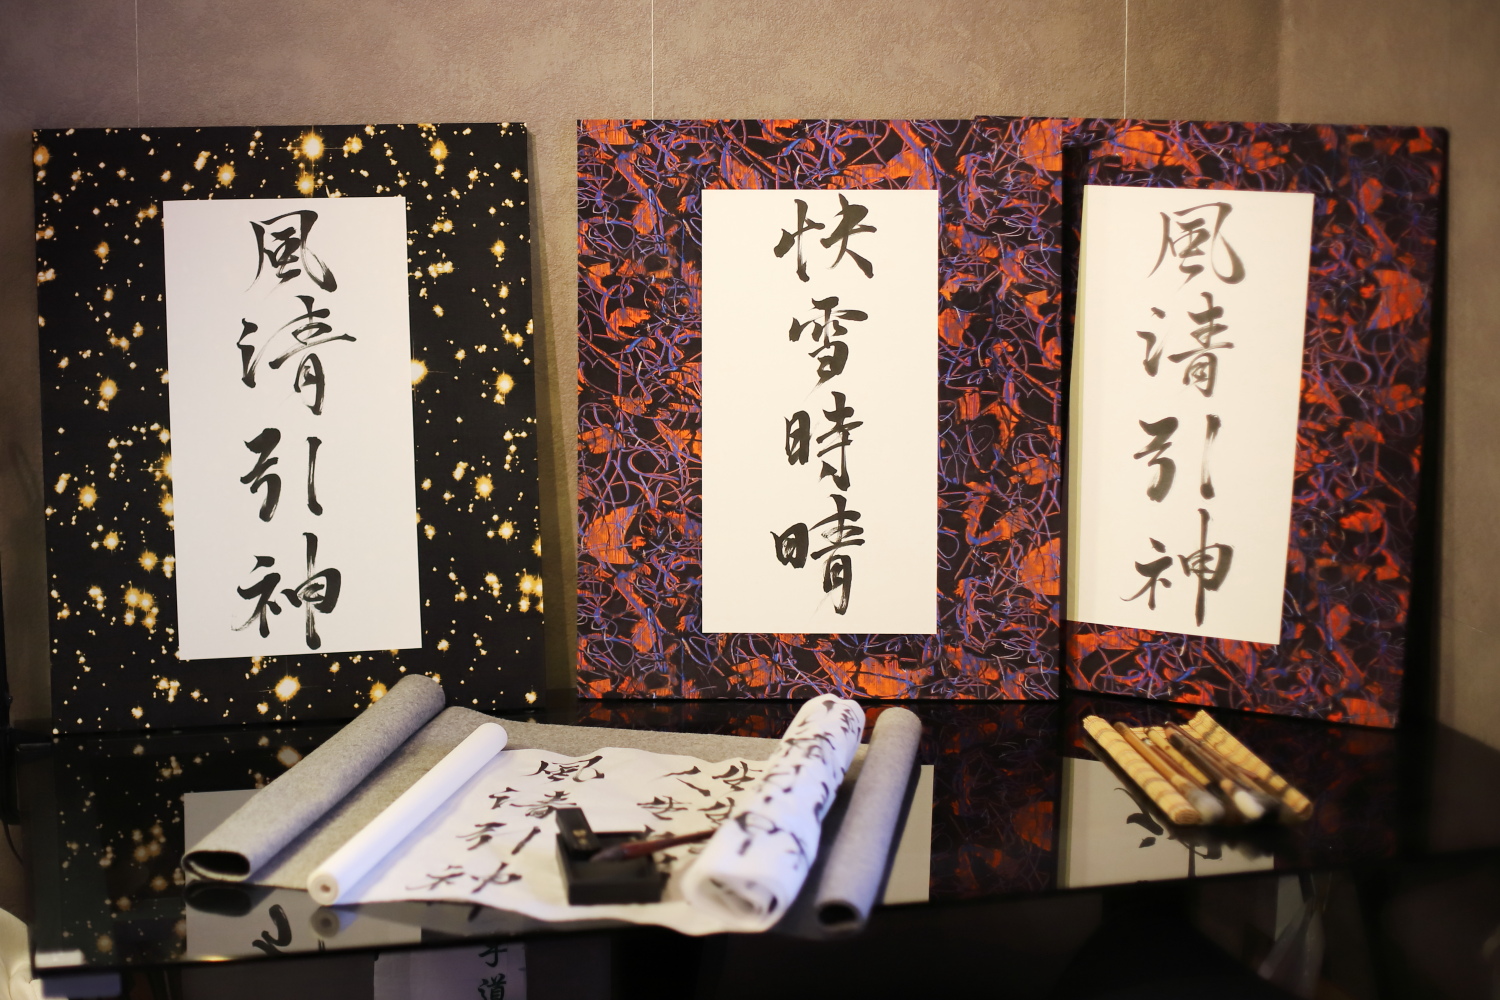 風清引神
快雪時晴
風清引神
風清引神
道